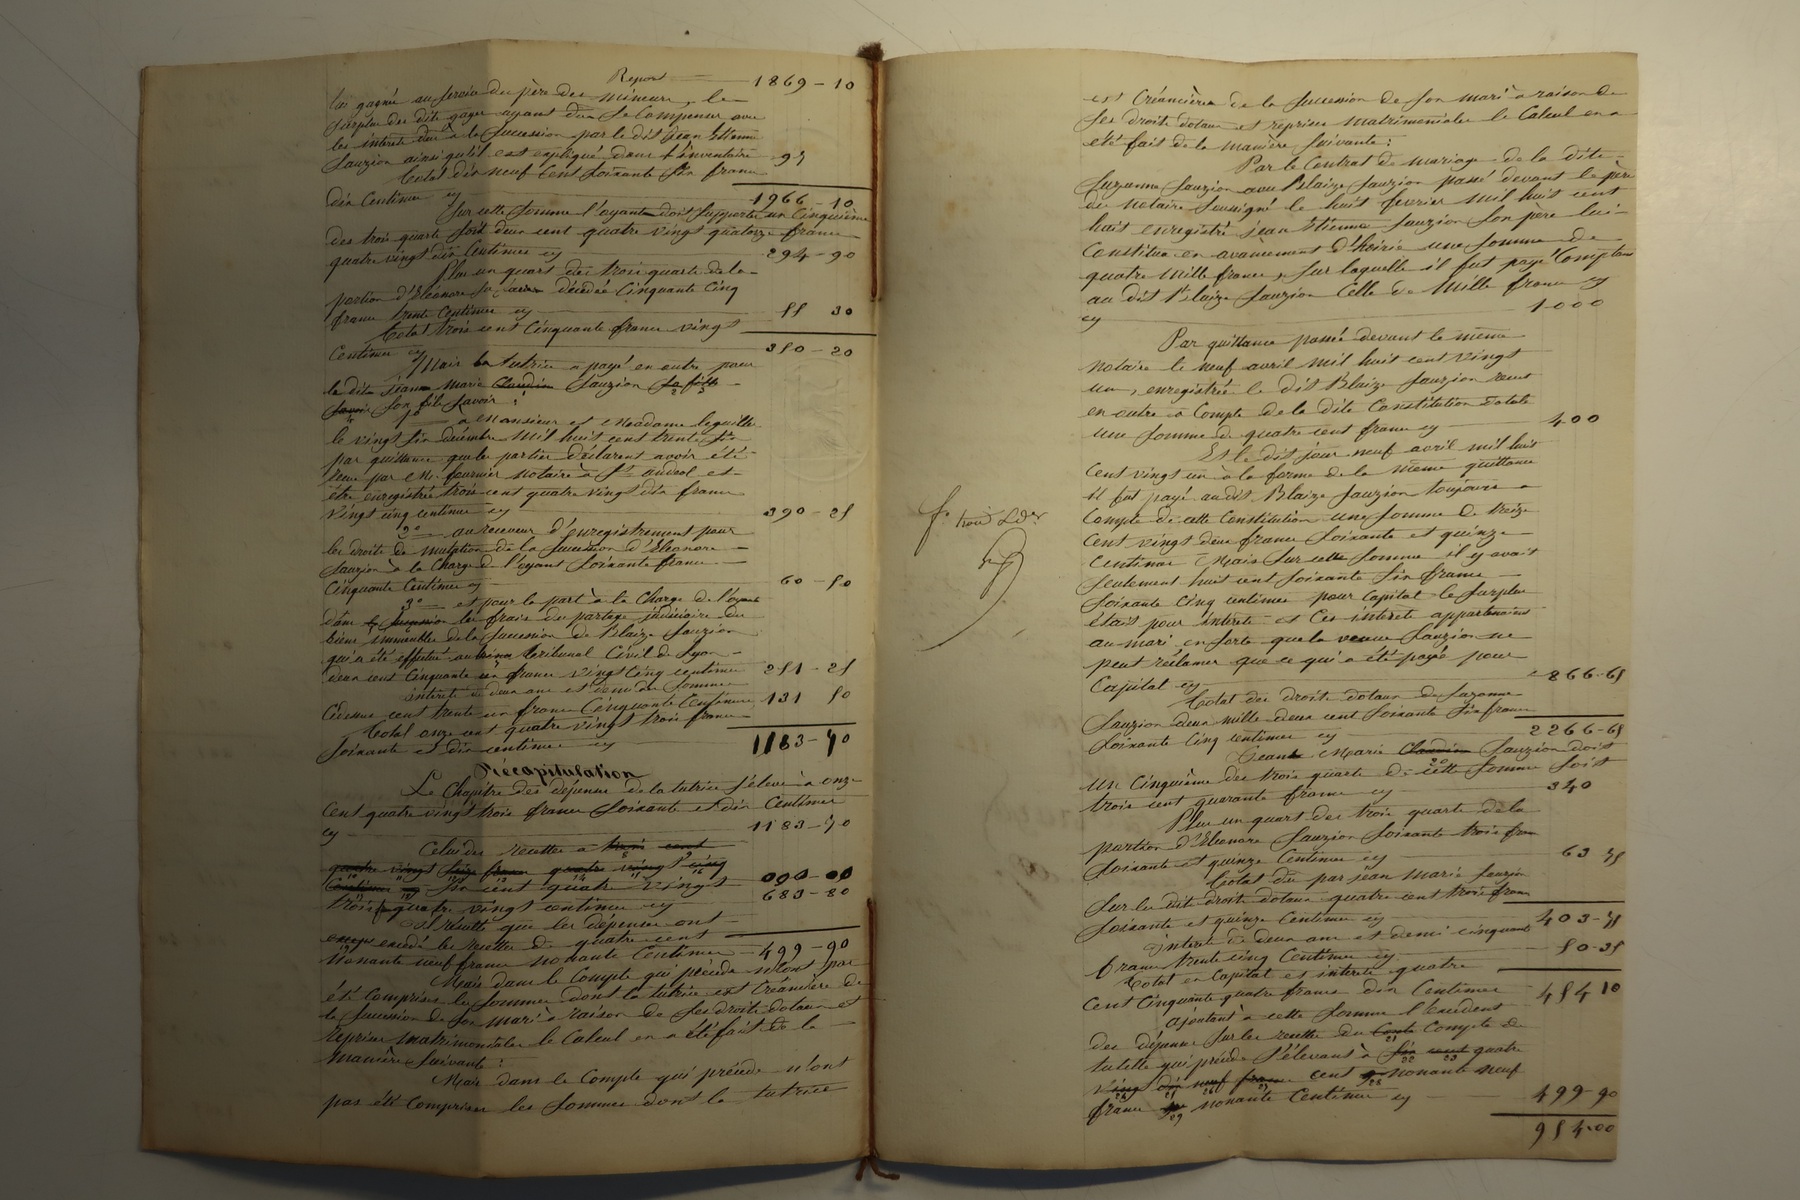 Report 1869-10
lui gagnés au service du père des mineurs, le
surplus des dits gages ayant du se compenser avec
les intérêts dus à la succession par le dit Jean Etienne
Sauzion ainsi qu'il est expliqué dans l'inventaire 97
Total dix neuf cent soixante six francs
dix Centimes cy 1966-10
Sur cette somme l'oyant doit supporter un Cinquième
des trois quarts soit deux cent quatre vingt quatorze francs
quatre vingt dix Centimes cy 294-90
Plus un quart des trois quarts de la
portion d'Eléonore sa décédée Cinquante Cinq
francs trente Centimes cy 55 30
Total trois cent Cinquante francs vingt
Centimes cy 350-20
Mais la tutrice a payé en outre pour
le dit Jean Marie Claudin Sauzion sa fille
savoir son fils savoir :
1° à Monsieur et Madame
le vingt six décembre mil huit cent trente six
par quittance que les parties déclarent avoir été
reçue par Me fournier notaire à St andeol et
être enregistrée trois cent quatre vingt dix francs
vingt cinq centimes cy 390-25
2° au receveur d'enregistrement pour
les droits de mutation de la succession d'Eléonore
Sauzion à la charge de l'oyant soixante francs
Cinquante Centimes cy 60-50
3° et pour la part à la charge de l'oyant
dans la succession les frais du partage judiciaire des
biens immeubles de la succession de Blaize Sauzion
qui a été effectué au tribunal Civil de Lyon
deux cent Cinquante un francs vingt Cinq centimes 251-25
intérêts de deux ans et demi des sommes
Cidessus cent trente un francs Cinquante Centimes 131 50
Total onze cent quatre vingt trois francs
soixante et dix centimes cy 1183-70
Récapitulation
Le Chapitre des dépenses de la tutrice s'élève à onze
Cent quatre vingt trois francs soixante et dix Centimes
cy 1183-70
Celui des recettes à trois cent
quatre vingt seize francs quatre vingt cinq
Centimes cy six cent quatre vingt
trois francs quatre vingt centimes cy 683-80
Il résulte que les dépenses ont
excédé les recettes de quatre cent
nonante neuf francs nonante Centimes 499-90
Mais dans le Compte qui précède n'ont pas
été comprises les sommes dont la tutrice est créancière de
la succession de son mari à raison de ses droits dotaux et
reprises matrimoniales le Calcul en a été fait de la
manière suivante :
Mais dans le Compte qui précède n'ont
pas été comprises les sommes dont la tutrice
est Créancière de la succession de son mari à raison de
ses droits dotaux et reprises matrimoniales le Calcul en a
été fait de la manière suivante :
Par le Contrat de mariage de la dite
Suzanne Sauzion avec Blaize Sauzion passé devant le père
du notaire soussigné le huit fevrier mil huit cent
huit enregistré jean Etienne Sauzion son père lui
Constitua en avancement d'hoirie une somme de
quatre mille francs, sur laquelle il fut payé Comptant
au dit Blaize Sauzion Celle de Mille francs cy
cy 1000
Par quittance passée devant le même
notaire le neuf avril mil huit cent vingt
un, enregistrée le dit Blaize Sauzion reçut
en outre à Compte de la dite Constitution dotale
une somme de quatre cent francs cy 400
Et le dit jour neuf avril mil huit
Cent vingt un à la forme de la même quittance
il fut payé au dit Blaize Sauzion toujours à
Compte de cette Constitution une somme de treize
Cent vingt deux francs soixante et quinze
Centimes Mais sur cette somme il y avait
seulement huit cent soixante six francs
soixante Cinq centimes pour Capital le surplus
était pour intérêts et Ces intérêts appartenaient
au mari en sorte que la veuve Sauzion ne
peut réclamer que ce qui a été payé pour
Capital cy 866-65
Total des droits dotaux de Suzanne
Sauzion deux mille deux cent soixante six francs
soixante Cinq centimes cy 2266-65
Jean Marie Claudin Sauzion doit
un Cinquième des trois quarts de cette somme soit
trois cent quarante francs cy 340
Plus un quart des trois quarts de la
portion d'Eléonore Sauzion soixante trois francs
soixante et quinze Centimes cy 63 75
Total du par jean Marie Sauzion
sur les dits droits dotaux quatre cent trois francs
soixante et quinze Centimes cy 403-75
intérêts de deux ans et demi cinquante
francs trente cinq Centimes cy 50-35
Total en Capital et intérêts quatre
Cent Cinquante quatre francs dix Centimes 454 10
ajoutant à cette somme l'excédent
des dépenses sur les recettes du Conte Compte de
tutelle qui précède s'élevant à six cent quatre
vingt dix neuf francs cent nonante neuf
francs nonante Centimes cy 499-90
954-00